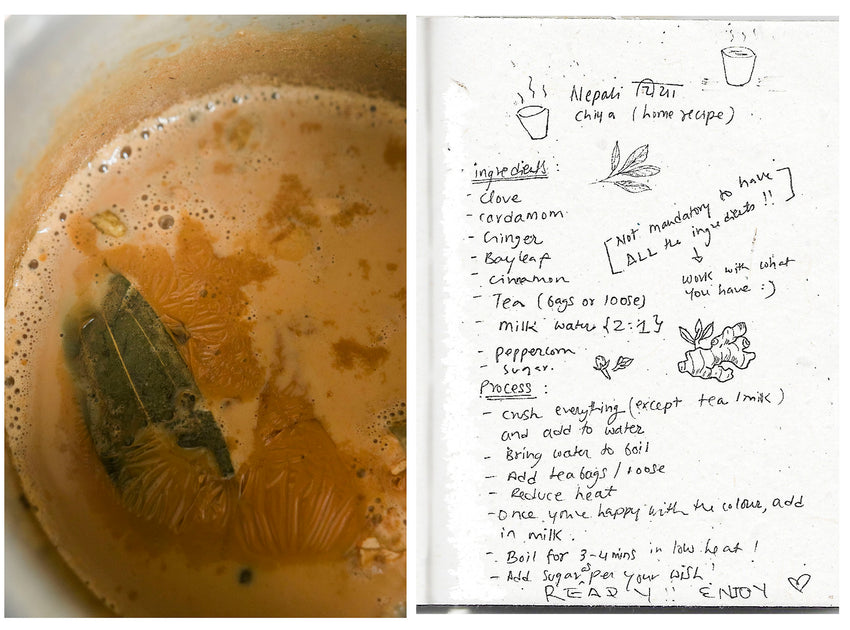 Nepali चिया
Chiya (home recipe)
ingredients:
- Clove
- cardamom
- Ginger
- Bay leaf
- cinnamon
- Tea (bags or loose)
- milk water {2:1}
- peppercorn
- sugar.
[Not mandatory to have
ALL the ingredients !!]
work with what
you have :)
Process :
- crush everything (except tea/milk)
and add to water
- Bring water to boil
- Add teabags/loose
- Reduce heat
- Once you're happy with the colour, add
in milk.
- Boil for 3-4 mins in low heat!
- Add sugar as per your wish!
READY!! ENJOY